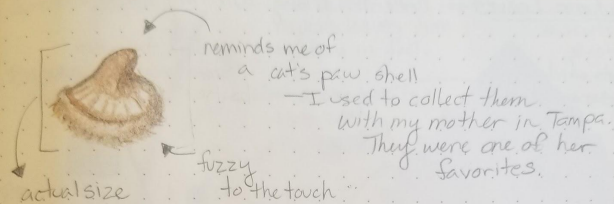 reminds me of
a cat's paw shell
—I used to collect them
with my mother in Tampa.
They were one of her
favorites.
fuzzy
to the touch
actual size